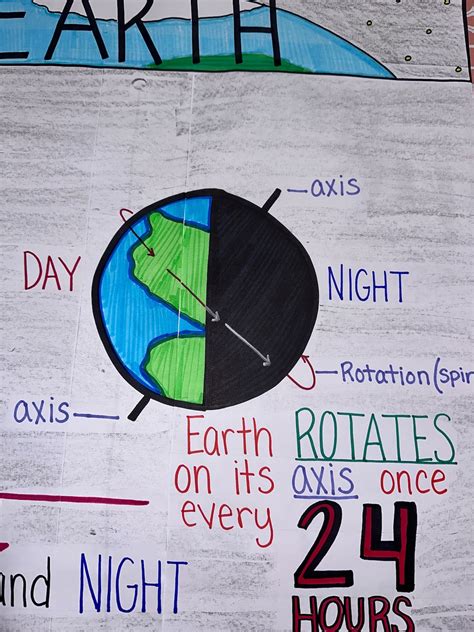 EARTH
axis
DAY
NIGHT
Rotation (spin
axis
Earth ROTATES
on its axis once
every 24
HOURS
and NIGHT